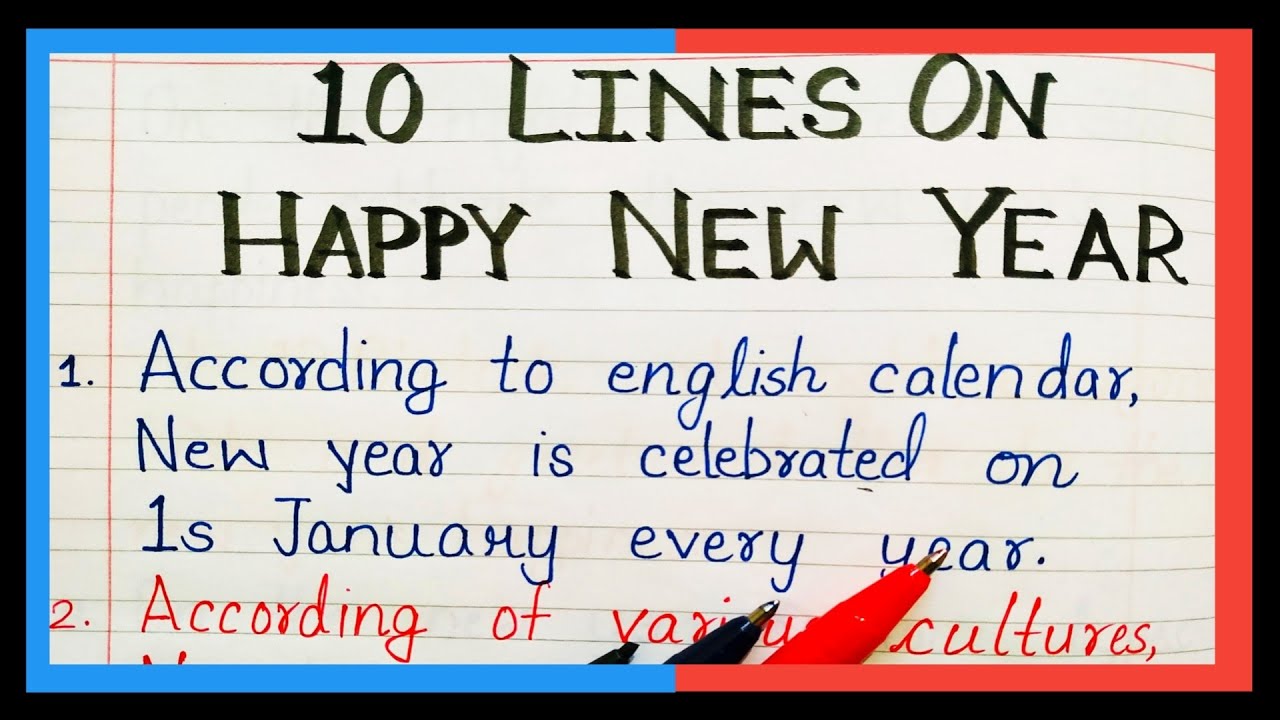 10 LINES ON
HAPPY NEW YEAR
1. According to english calendar,
New year is celebrated on
1s January every year.
2. According of various cultures,